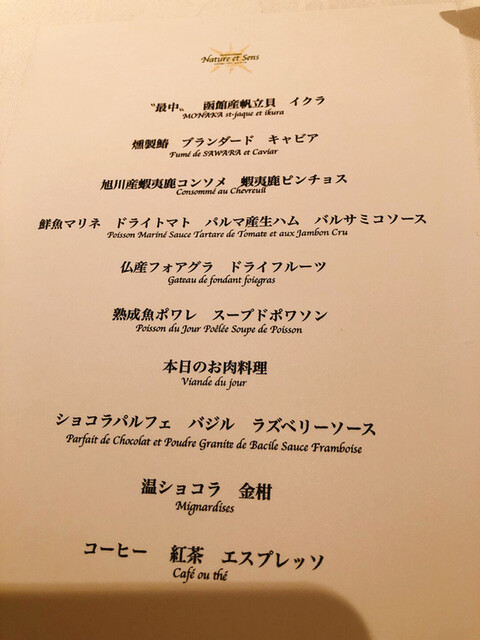 Nature et Sens
〝最中〟 函館産帆立貝 イクラ
MONAKA st-jaque et ikura
燻製鰆 ブランダード キャビア
Fumé de SAWARA et Caviar
旭川産蝦夷鹿コンソメ 蝦夷鹿ピンチョス
Consommé au Chevreuil
鮮魚マリネ ドライトマト パルマ産生ハム バルサミコソース
Poisson Mariné Sauce Tartare de Tomate et aux Jambon Cru
仏産フォアグラ ドライフルーツ
Gateau de fondant foiegras
熟成魚ポワレ スープドポワソン
Poisson du Jour Poêlée Soupe de Poisson
本日のお肉料理
Viande du jour
ショコラパルフェ バジル ラズベリーソース
Parfait de Chocolat et Poudre Granite de Bacile Sauce Framboise
温ショコラ 金柑
Mignardises
コーヒー 紅茶 エスプレッソ
Café ou thé